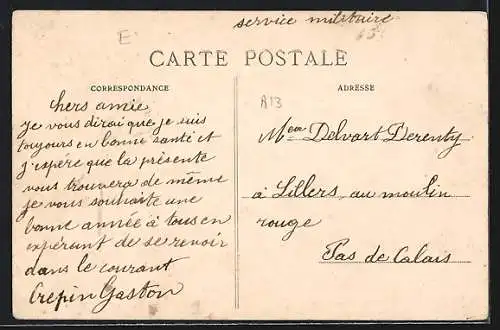 service militaire
E
65
CARTE POSTALE
CORRESPONDANCE
ADRESSE
A13
chers amie
Je vous dirai que je suis
toujours en bonne santé et
j'espére que la présente
vous trouvera de même
je vous souhaite une
bonne année à tous en
expérant de se revoir
dans le courant
Crepin Gaston
Delvart Derenty
à Lillers, au moulin
rouge
Pas de Calais